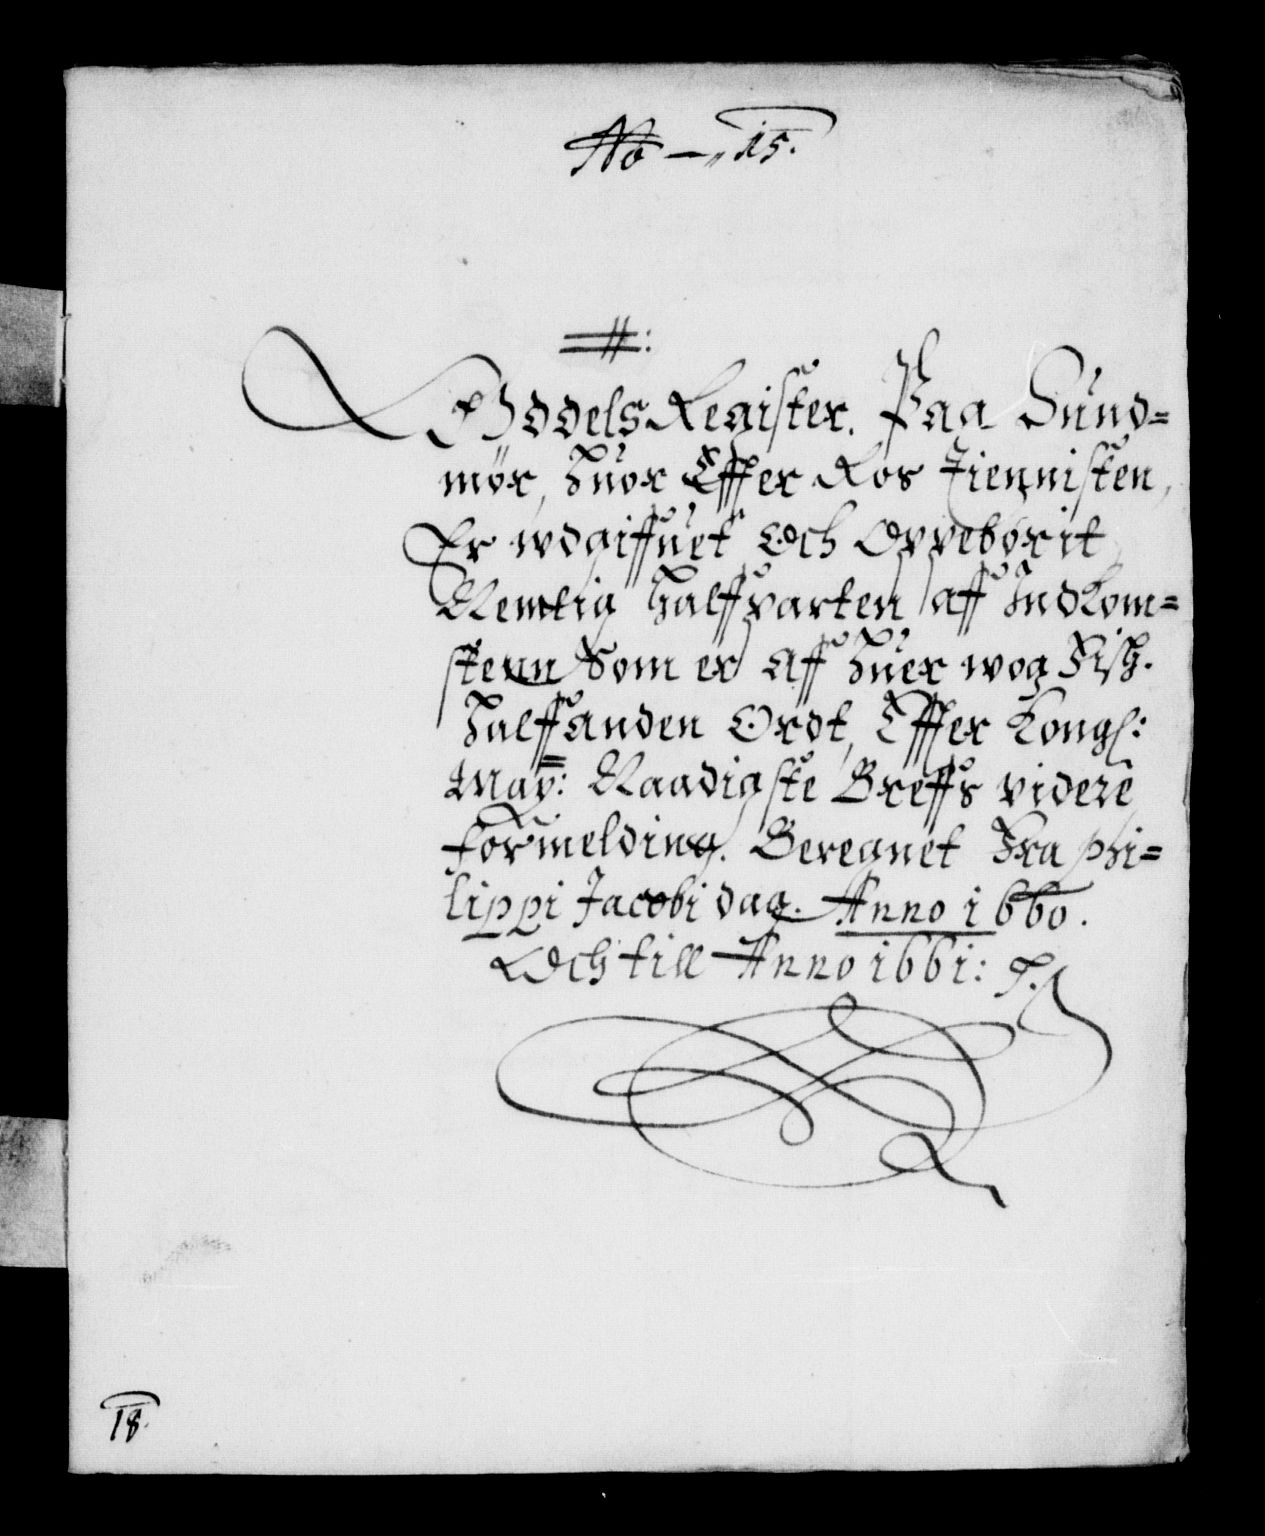 No —„ 15.
Oddels Register. Paa Sund=
mör, huor Effter Ros tiennisten,
Er wdgiffuet Och Oppebörit
Nemlig halffparten aff Indkom=
stenn Som er aff huer wog Fish.
halffanden Ordt, Effter Kongl:
May: Naadigste Breffs videre
formelding. Beregnet Fra Phi=
lippi Jacobi dag. Anno 1660.
Och till Anno 1661:
18.